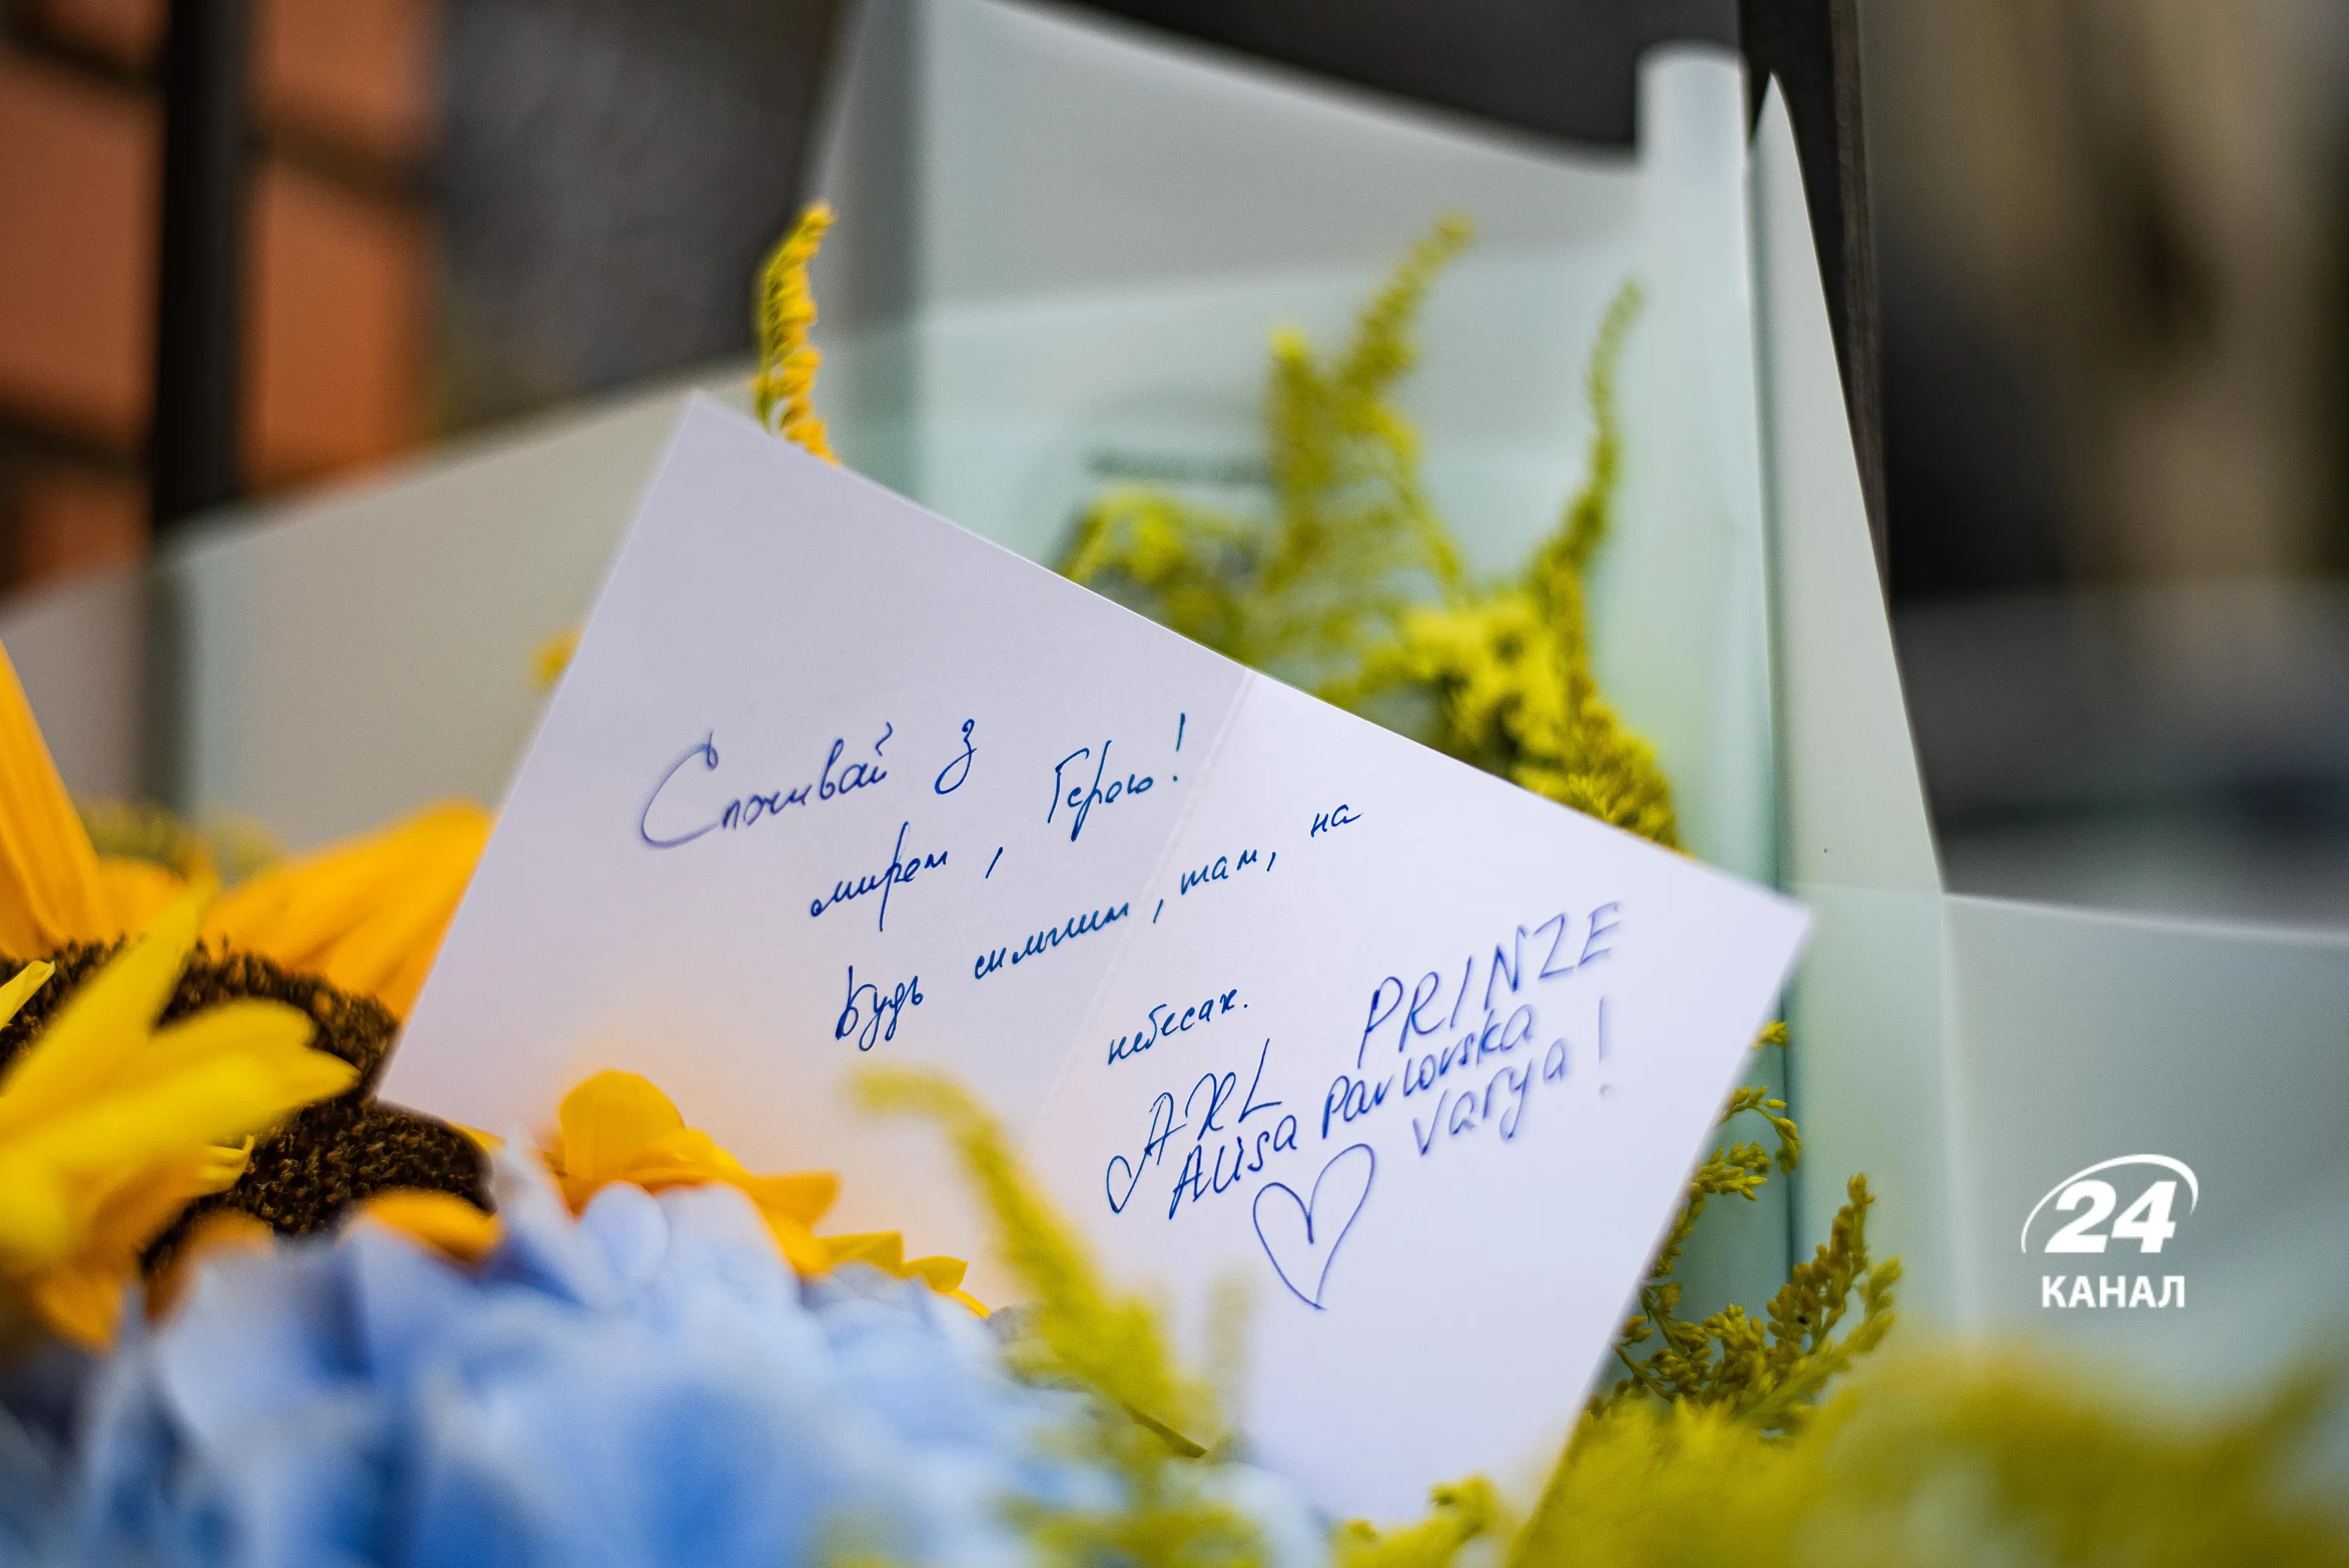 Спочивай з
миром, Герою!
Будь сильним, там, на
небесах.
AXL PRINZE
Alisa Pavlovska
Varya!
24
КАНАЛ